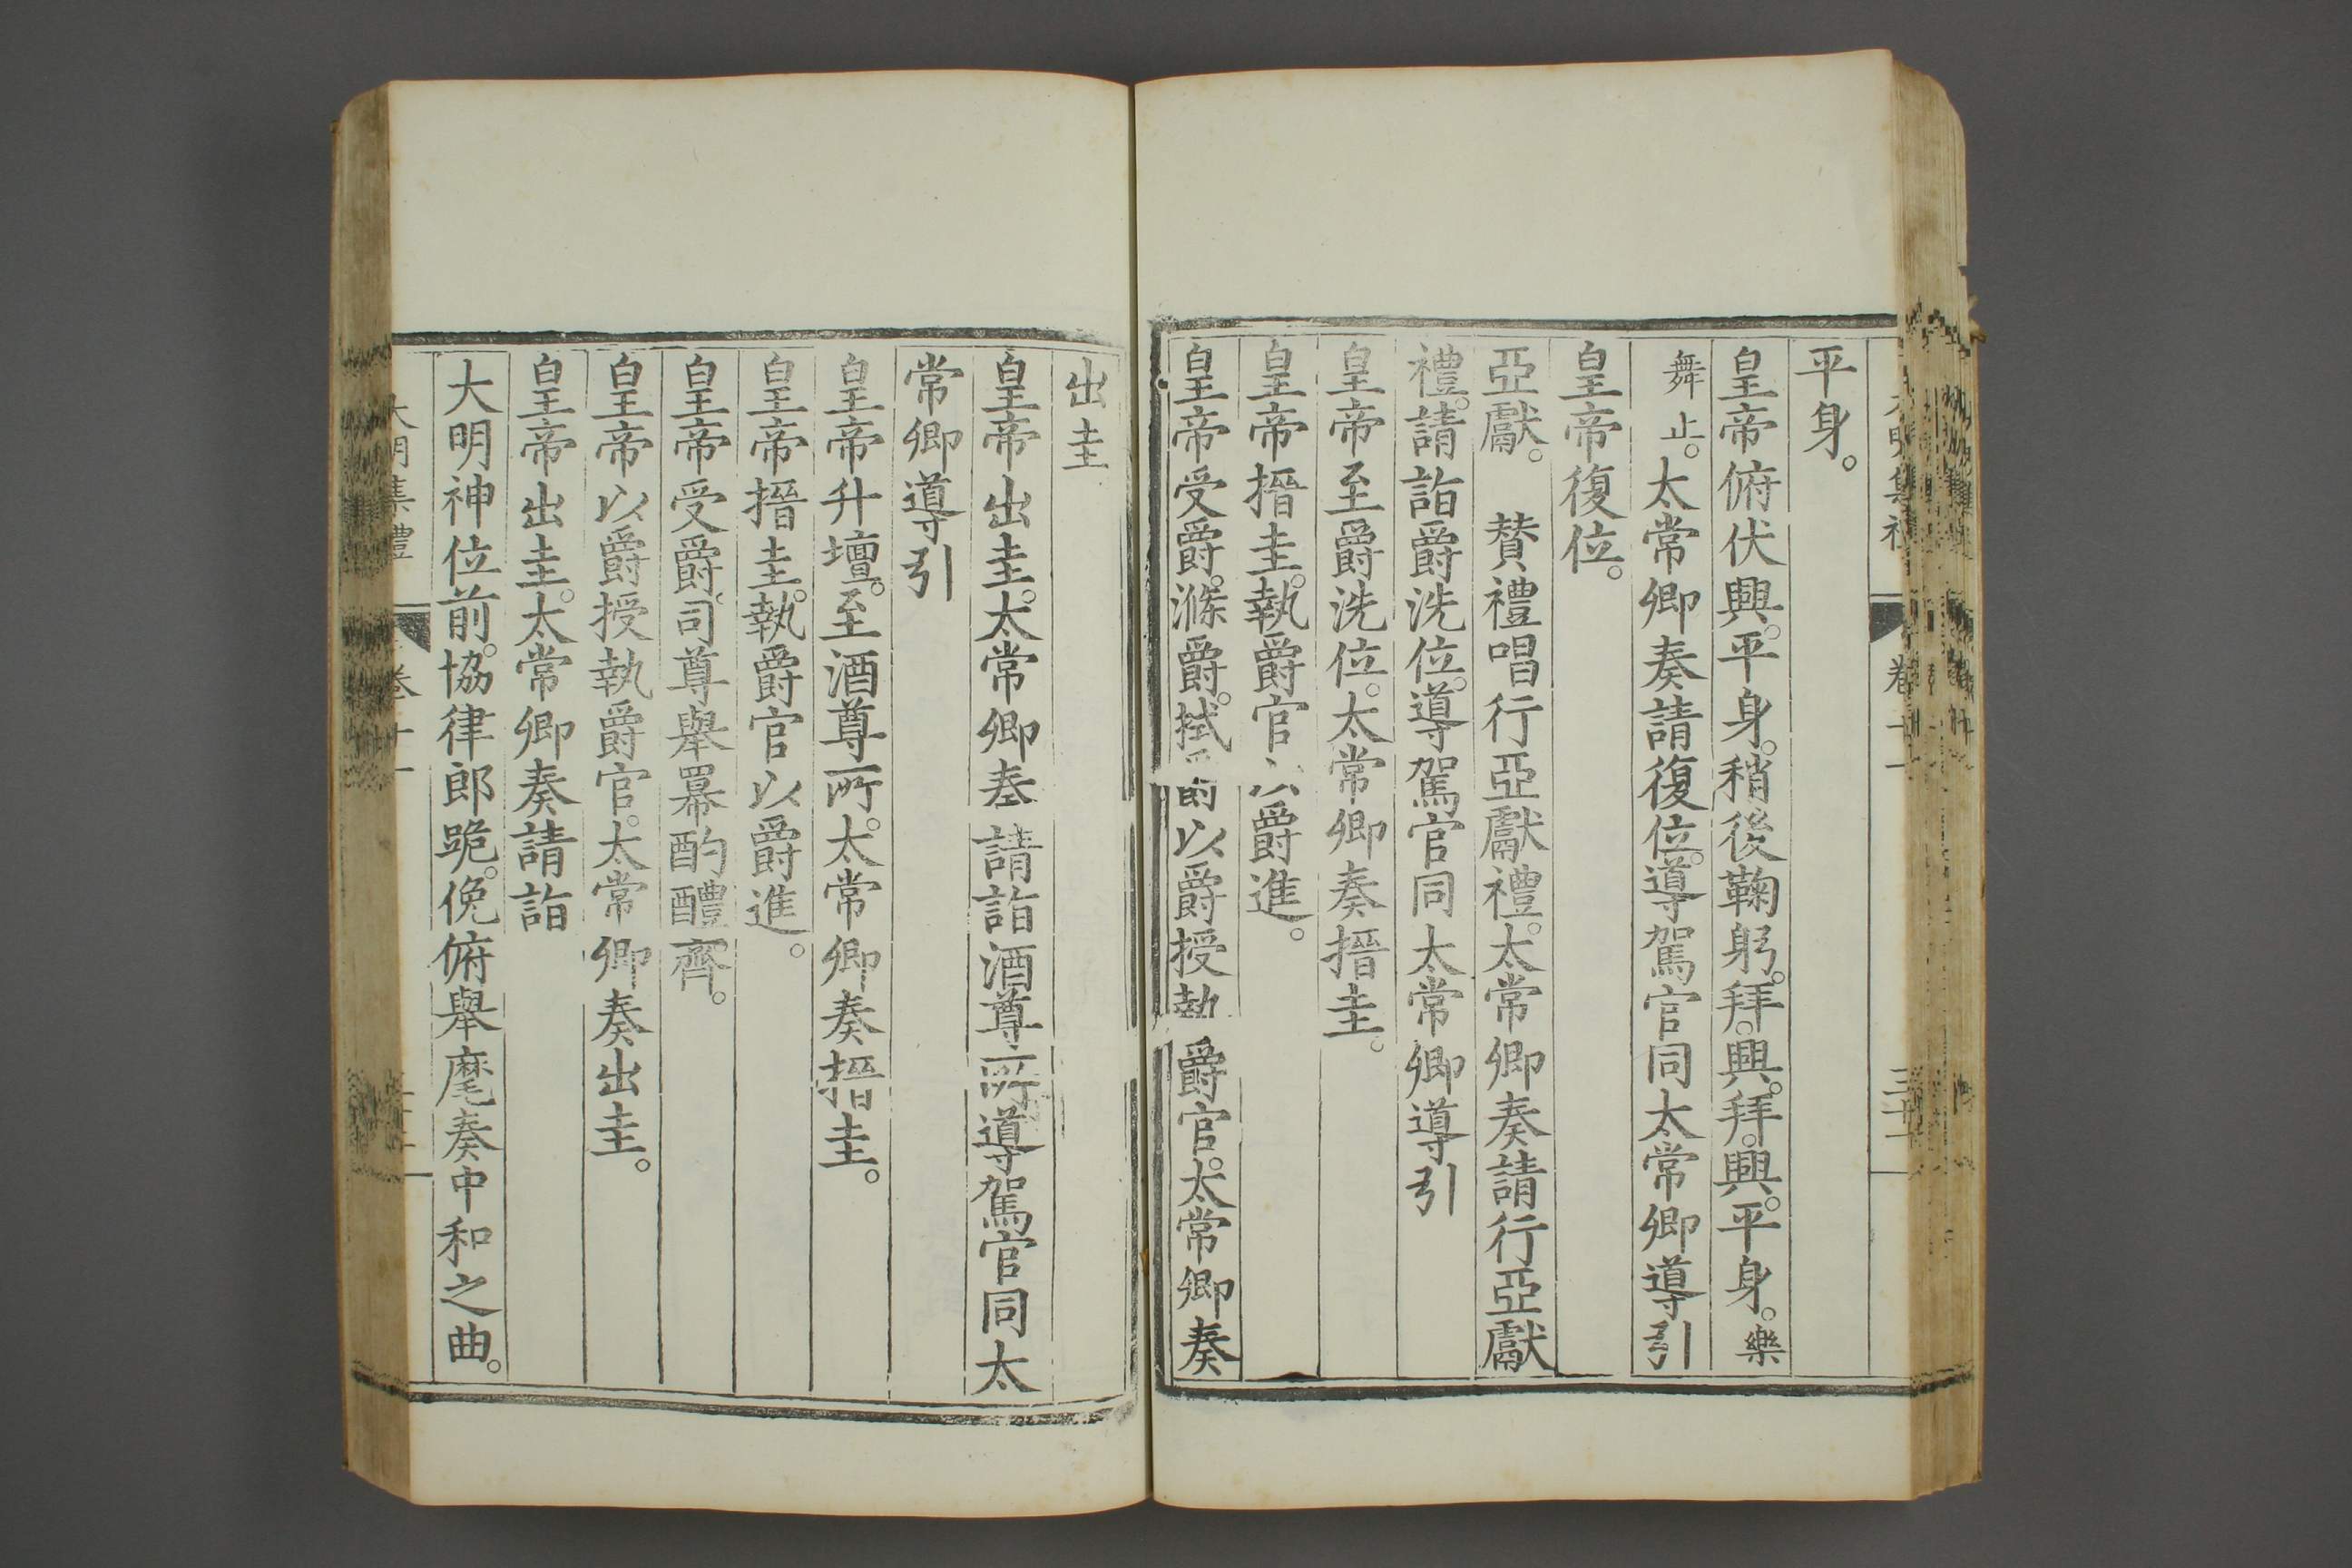 平身。
皇帝俯伏興。平身。稍後鞠躬。拜。興。拜。興。平身。樂
舞止。太常卿奏請復位。導駕官同太常卿導引
皇帝復位。
亞獻。　賛禮唱行亞獻禮。太常卿奏請行亞獻
禮。請詣爵洗位。導駕官同太常卿導引
皇帝至爵洗位。太常卿奏搢圭。
皇帝搢圭。執爵官以爵進。
皇帝受爵。滌爵。拭爵以爵授執爵官。太常卿奏
出圭
皇帝出圭。太常卿奏請詣酒尊所導駕官同太
常卿導引
皇帝升壇。至酒尊所。太常卿奏搢圭。
皇帝搢圭。執爵官以爵進。
皇帝受爵。司尊舉冪酌醴齊。
皇帝以爵授執爵官。太常卿奏出圭。
皇帝出圭。太常卿奏請詣
大明神位前。協律郎跪。俛俯舉麾奏中和之曲。
大明集禮　卷十一